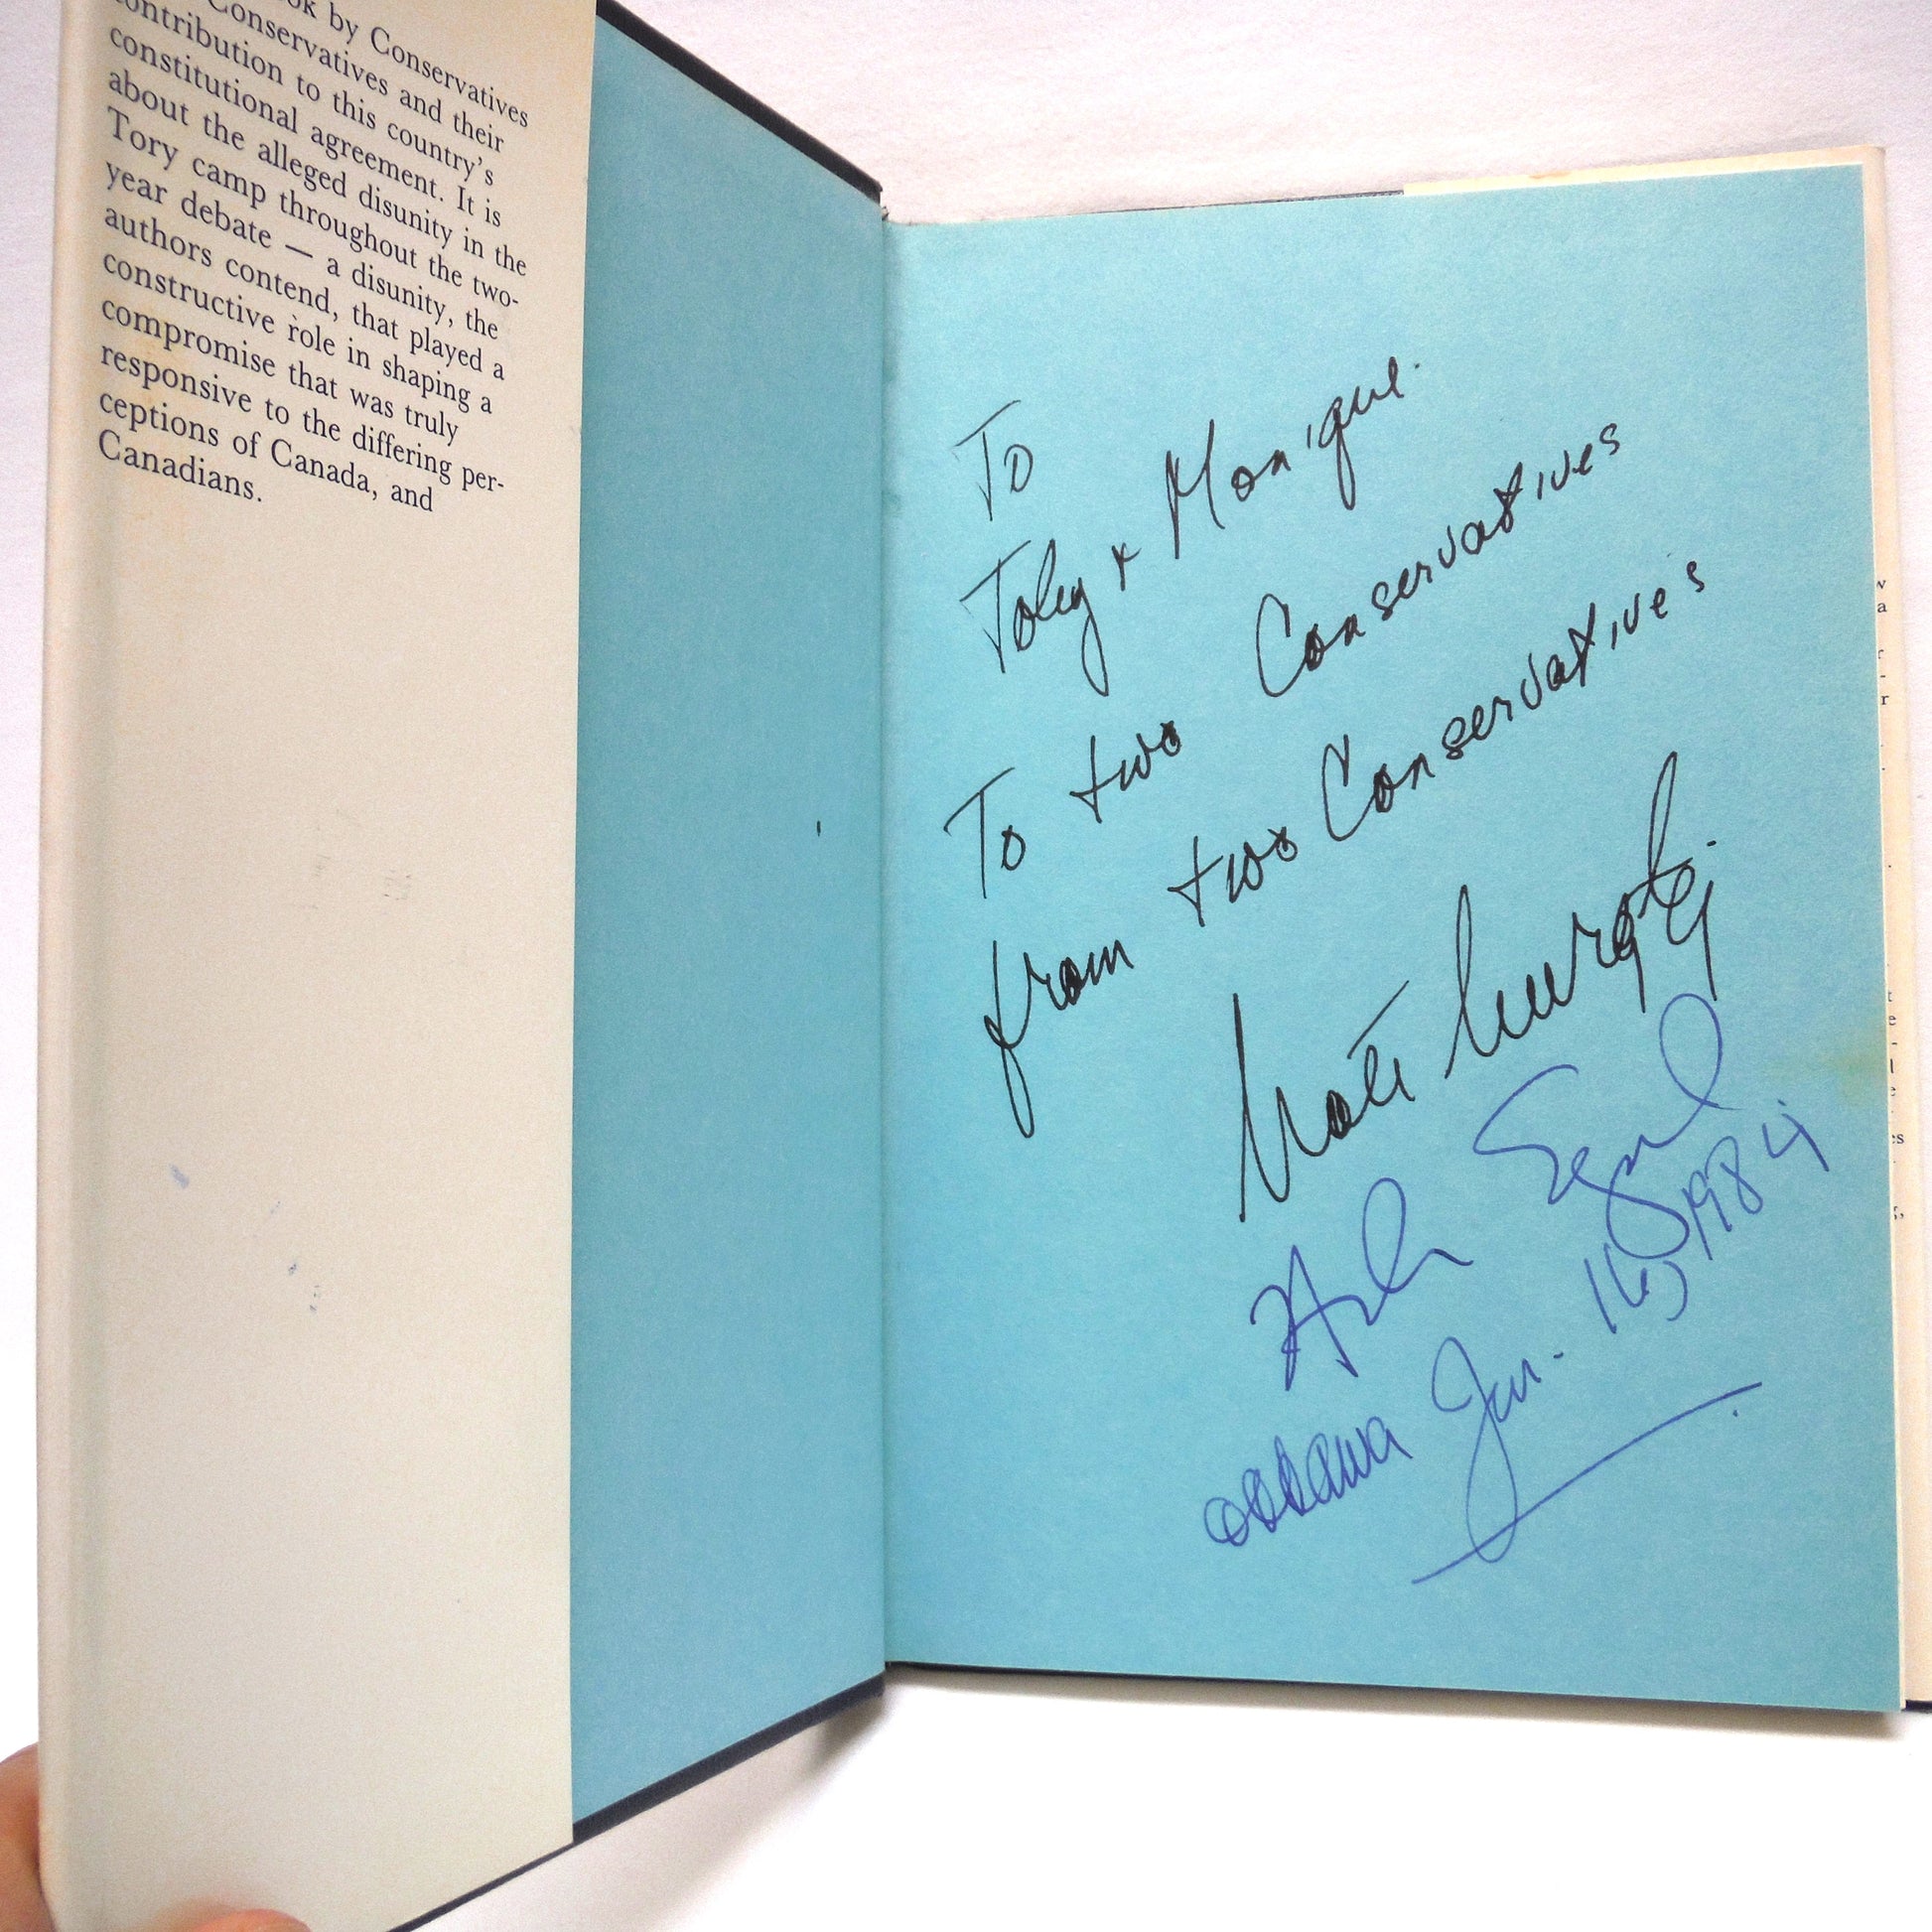 by Conservatives
Conservatives and their
contribution to this country's
constitutional agreement. It is
about the alleged disunity in the
Tory camp throughout the two-
year debate — a disunity, the
authors contend, that played a
constructive role in shaping a
compromise that was truly
responsive to the differing per-
ceptions of Canada, and
Canadians.
To
Toby & Monique.
To two Conservatives
from two Conservatives
Nate Nurgitz
Hugh Segal
Ottawa Jan. 16, 1984